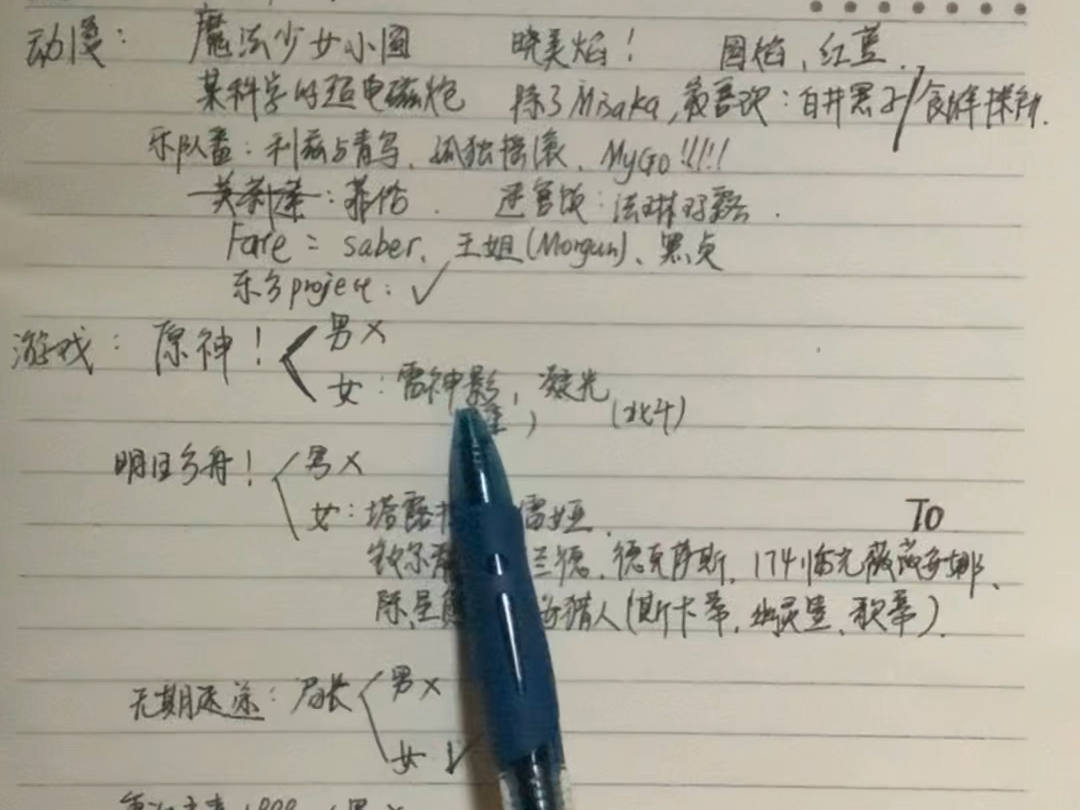 动漫: 魔法少女小圆 晓美焰! 圆焰、红蓝.
某科学的超电磁炮 除了Misaka,最喜欢:白井黑子/食蜂操祈.
乐队番:利兹与青鸟、孤独摇滚、MyGO!!!!!
:菲伦. 迷宫饭:法琳玛露.
Fate = saber、王姐(Morgan)、黑贞
东方project:✓
游戏: 原神! 男×
女:雷神影, 凝光
(北斗)
明日方舟! 男×
女:塔露 雷娅. To
兰德、德克萨斯、174临光薇薇安娜、
陈、星 猎人(斯卡蒂、幽灵鲨、歌蕾).
无期迷途:局长 男×
女 ✓
1999 男